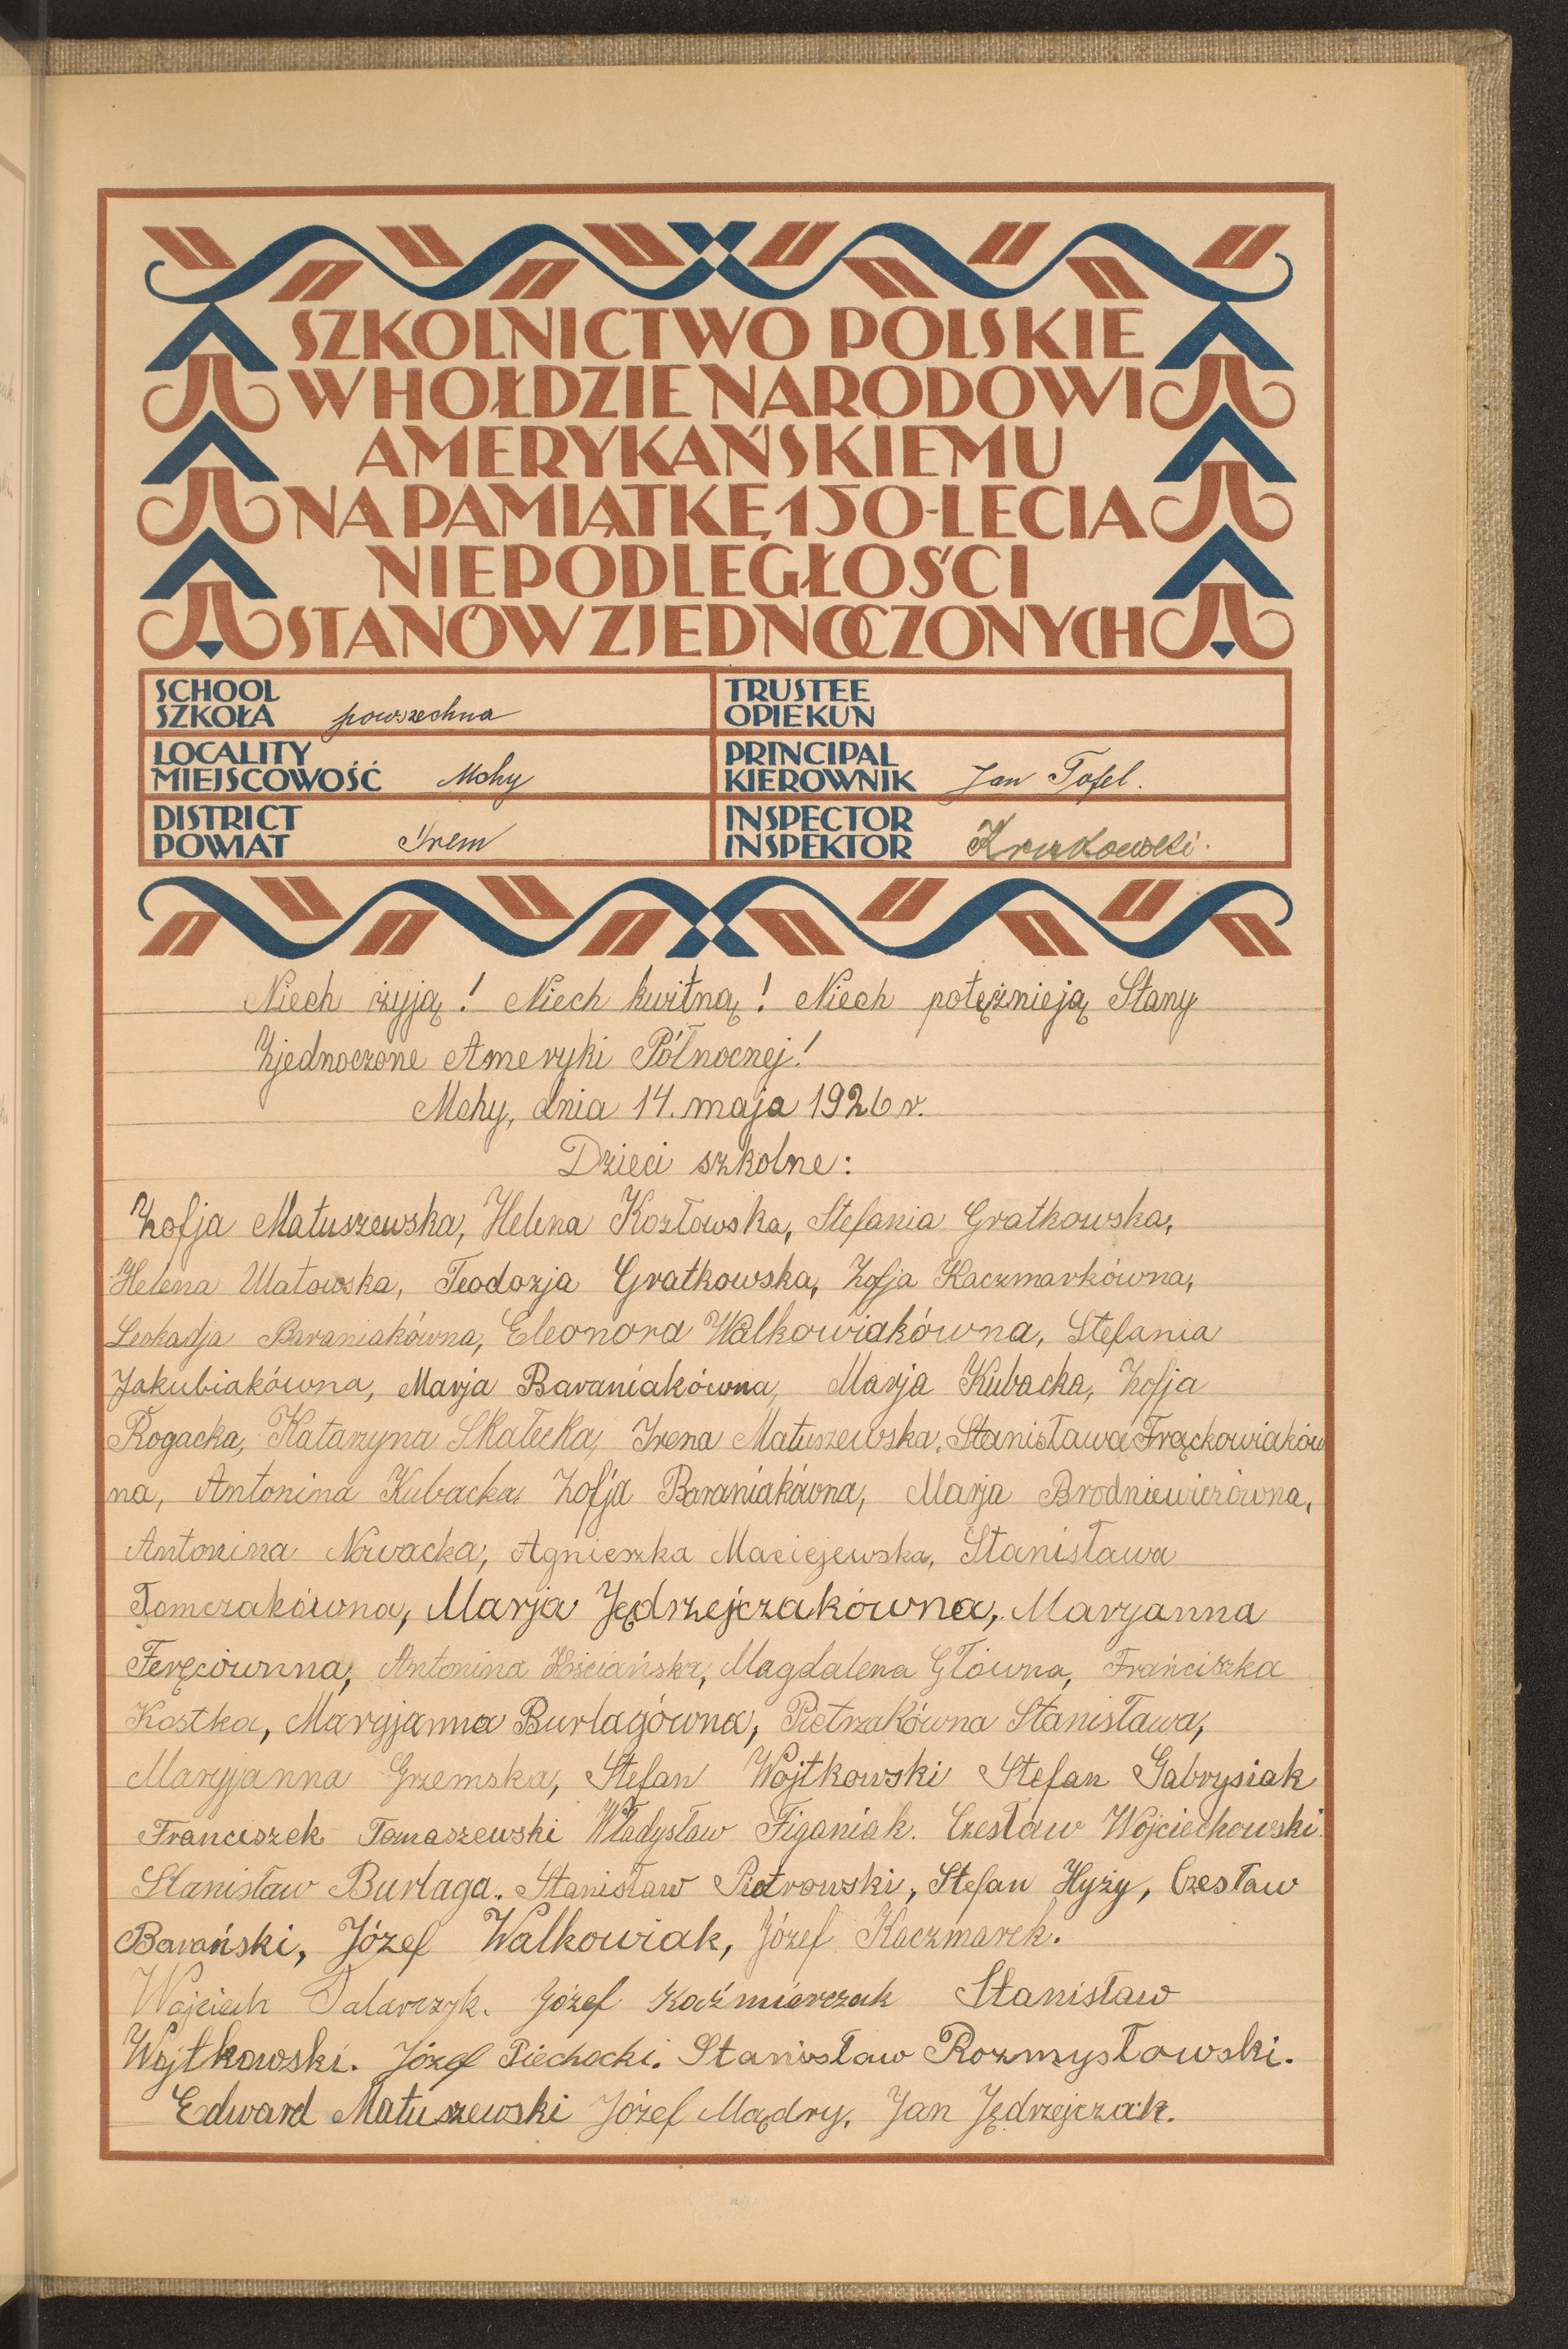 SZKOLNICTWO POLSKIE
W HOŁDZIE NARODOWI
AMERYKAŃSKIEMU
NA PAMIĄTKĘ 150-LECIA
NIEPODLEGŁOŚCI
STANÓW ZJEDNOCZONYCH
SCHOOL
SZKOŁA powszechna
TRUSTEE
OPIEKUN
LOCALITY
MIEJSCOWOŚĆ Mchy
PRINCIPAL
KIEROWNIK Jan Tofel.
DISTRICT
POWIAT Śrem
INSPECTOR
INSPEKTOR Krukowski.
Niech żyją! Niech kwitną! Niech potężnieją Stany
Zjednoczone Ameryki Północnej!
Mchy, dnia 14. maja 1926 r.
Dzieci szkolne:
Zofja Matuszewska, Helena Kozłowska, Stefania Gratkowska,
Helena Ulatowska, Teodozja Gratkowska, Zofja Kaczmarkówna,
Leokadja Baraniakówna, Eleonora Walkowiakówna, Stefania
Jakubiakówna, Marja Baraniakówna, Marja Kubacka, Zofja
Rogacka, Katarzyna Skałecka, Irena Matuszewska, Stanisława Frąckowiaków
na, Antonina Kubacka, Zofja Baraniakówna, Marja Brodniewiczówna,
Antonina Nowacka, Agnieszka Maciejewska, Stanisława
Tomczakówna, Marja Jędrzejczakówna, Maryanna
Feręcównna, Antonina Magdalena Główna, Franciszka
Kostka, Maryjanna Burlagówna, Pietrzakówna Stanisława,
Maryjanna Grzemska, Stefan Wojtkowski Stefan Gabrysiak
Franciszek Tomaszewski Władysław Figaniak. Czesław Wojciechowski.
Stanisław Burlaga. Stanisław Piotrowski, Stefan Hyży, Czesław
Barański, Józef Walkowiak, Józef Kaczmarek.
Wojciech Talarczyk. Józef Kaźmierczak Stanisław
Wojtkowski. Józef Piechocki. Stanisław Rozmysłowski.
Edward Matuszewski Józef Mądry, Jan Jędrzejczak.